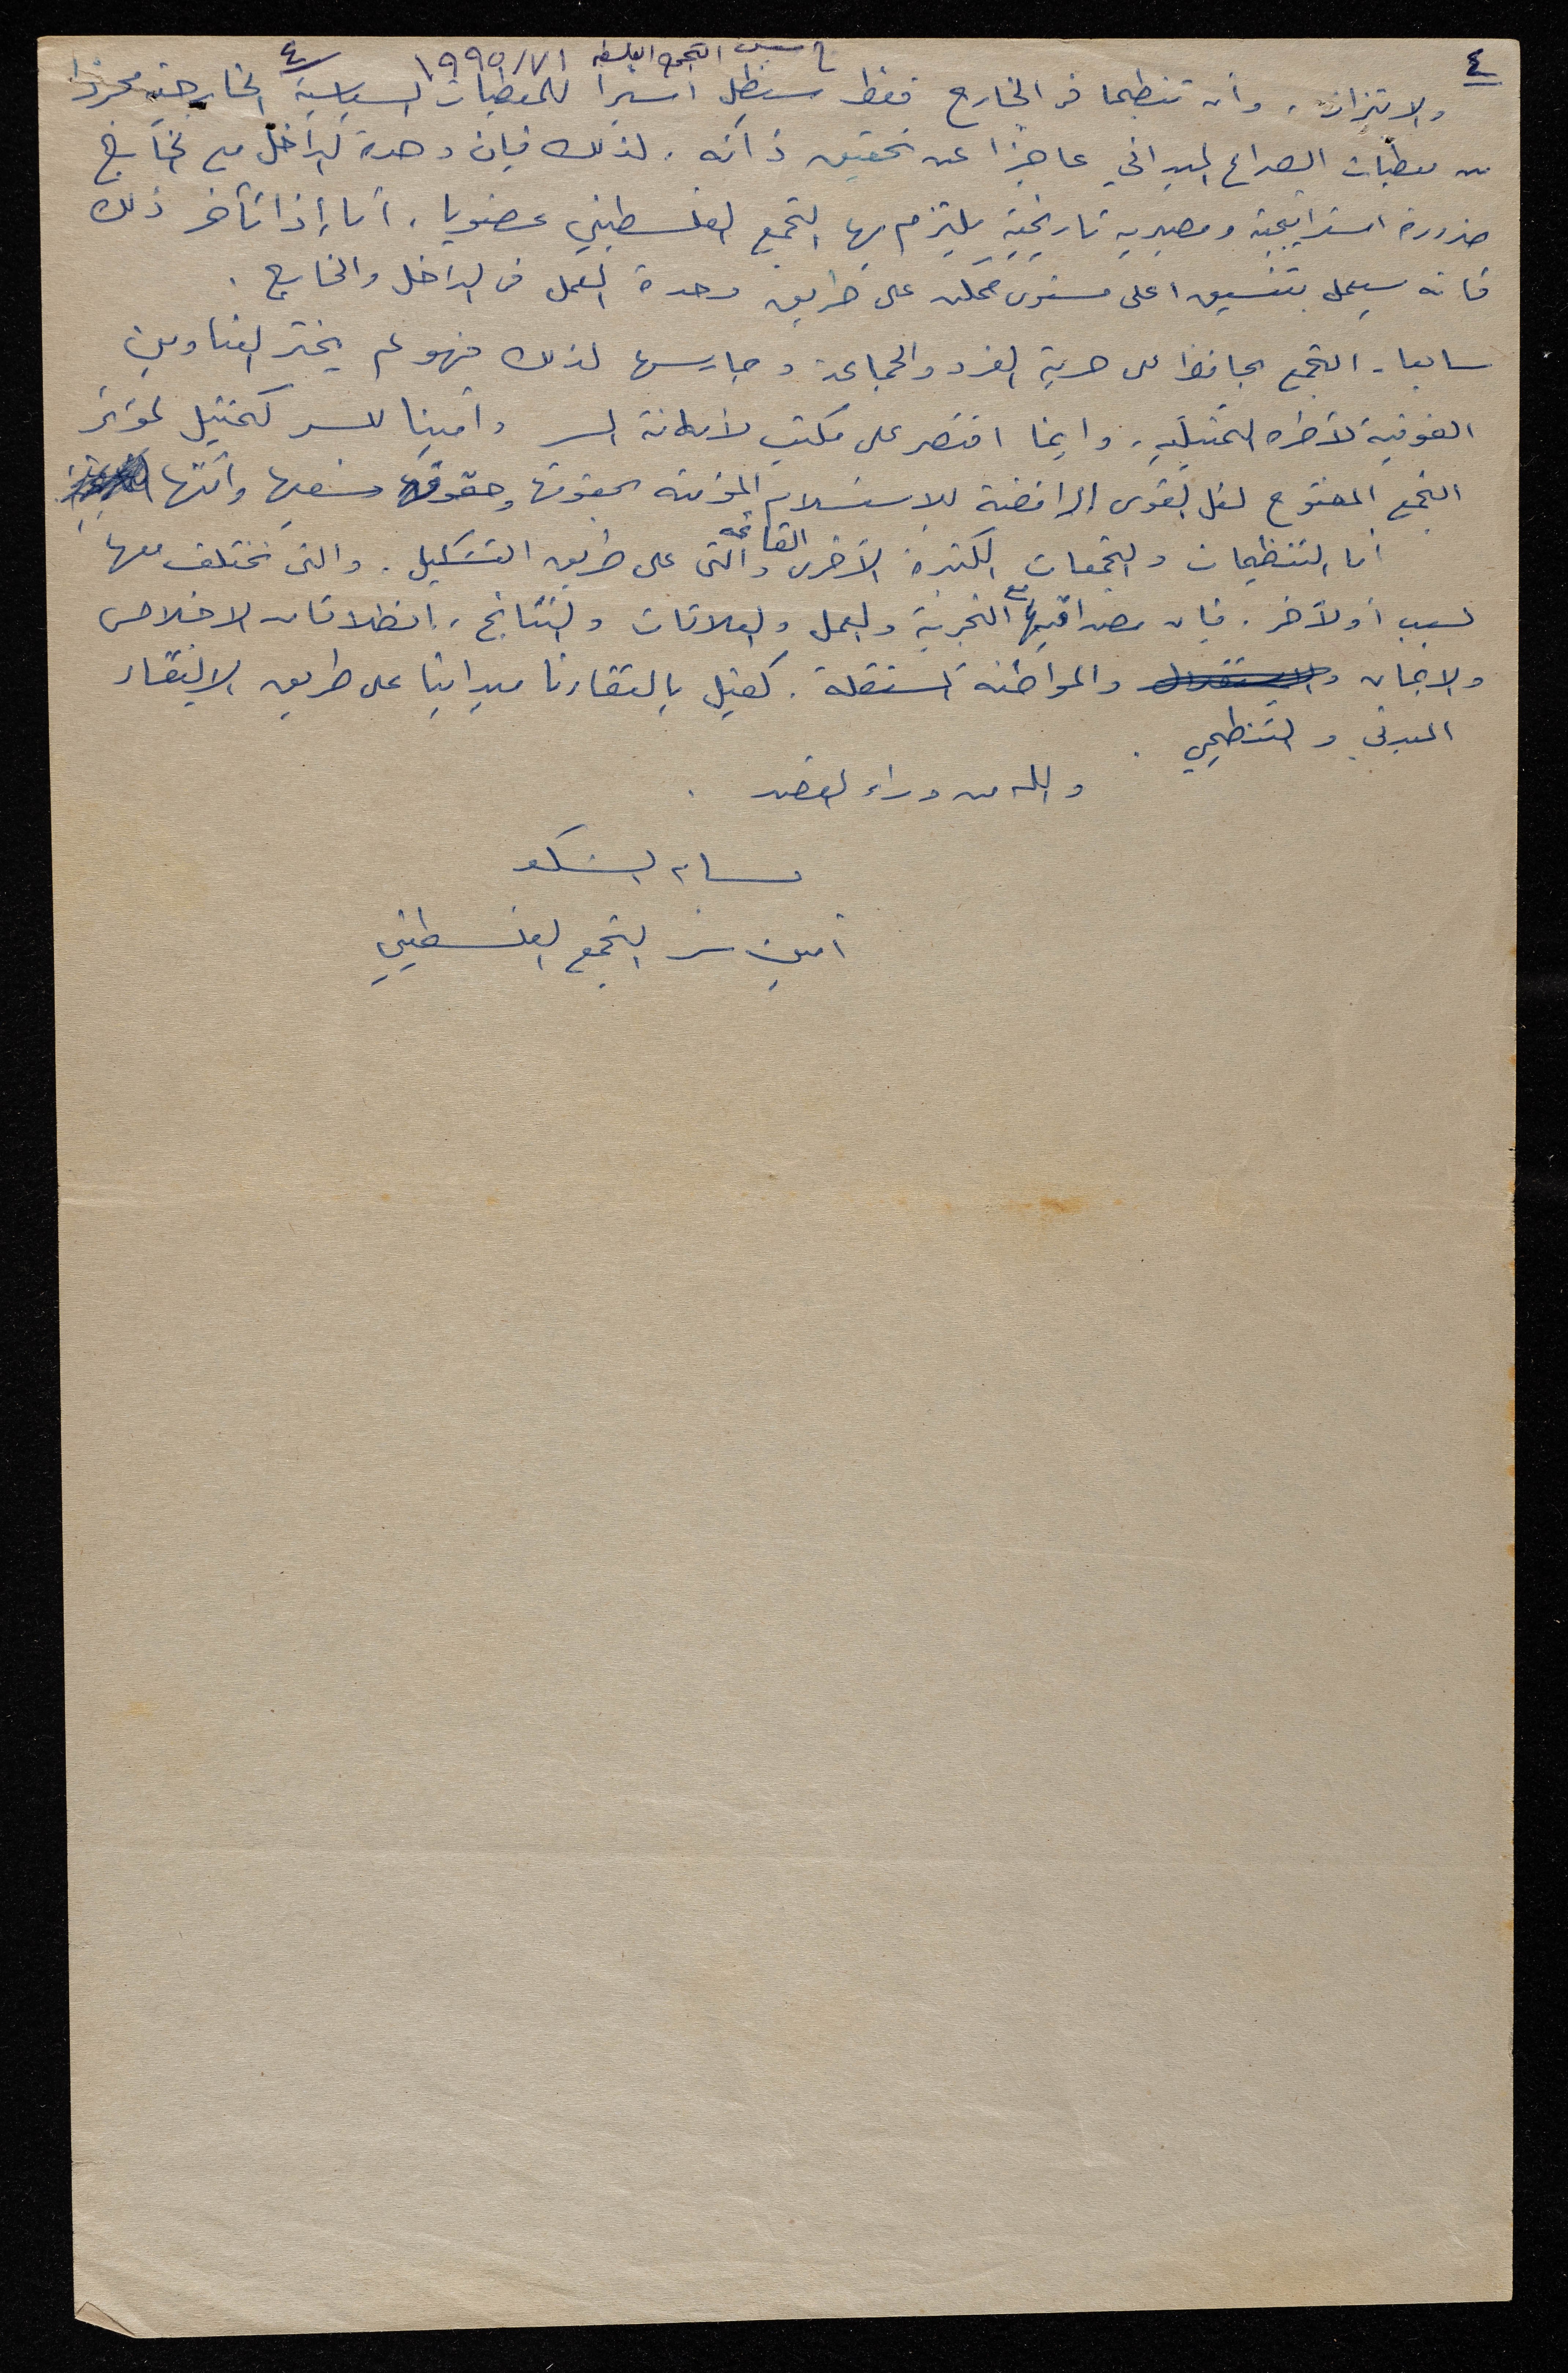 ٤
تأسيس التجمع الفلسط ١٩٩٥/٧١ ٤
والاتزان، وأن تنظيما في الخارج فقط سيظل أسيرا للمعطيات السياسية الخارجية مجردا
من معطيات الصراع الميداني عاجزا عن تحقيق ذاته. لذلك فإن وحدة الداخل مع الخارج
ضرورة استراتيجية ومصيرية تاريخية يلتزم بها التجمع الفلسطيني عضويا، أما إذا تأخر ذلك
فانه سيعمل بتنسيق اعلى مستوى ممكن على طريق وحدة العمل في الداخل والخارج.
سابعا - التجمع يحافظ على حرية الفرد والجماعة ويمارسها لذلك فهو لم يختر العناوين
الفوقية لأطره التمثيلية، وإنما اقتصر على مكتب لأمانة السر وأمينا للسر كممثيل لمؤتمر
التجمع المفتوح لكل القوى الرافضة للاستسلام المؤمنة بحقوقها وحقوق شعبها وأمتها
أما التنظيمات والتجمعات الكثيرة الأخرى القائمة والتي على طريق التشكيل. والتي تختلف معها
لسبب أو لآخر. فإن مصداقيتها مع التجربة والعمل والعلاقات والنتائج، انطلاقا من الاخلاص
والايمان والمواطنة المستقلة. كفيل بالتقاءنا ميدانيا على طريق الالتقاء
المبدئي والتنظيمي.
والله من وراء القصد.
بسام الشكعه
أمين سر التجمع الفلسطيني